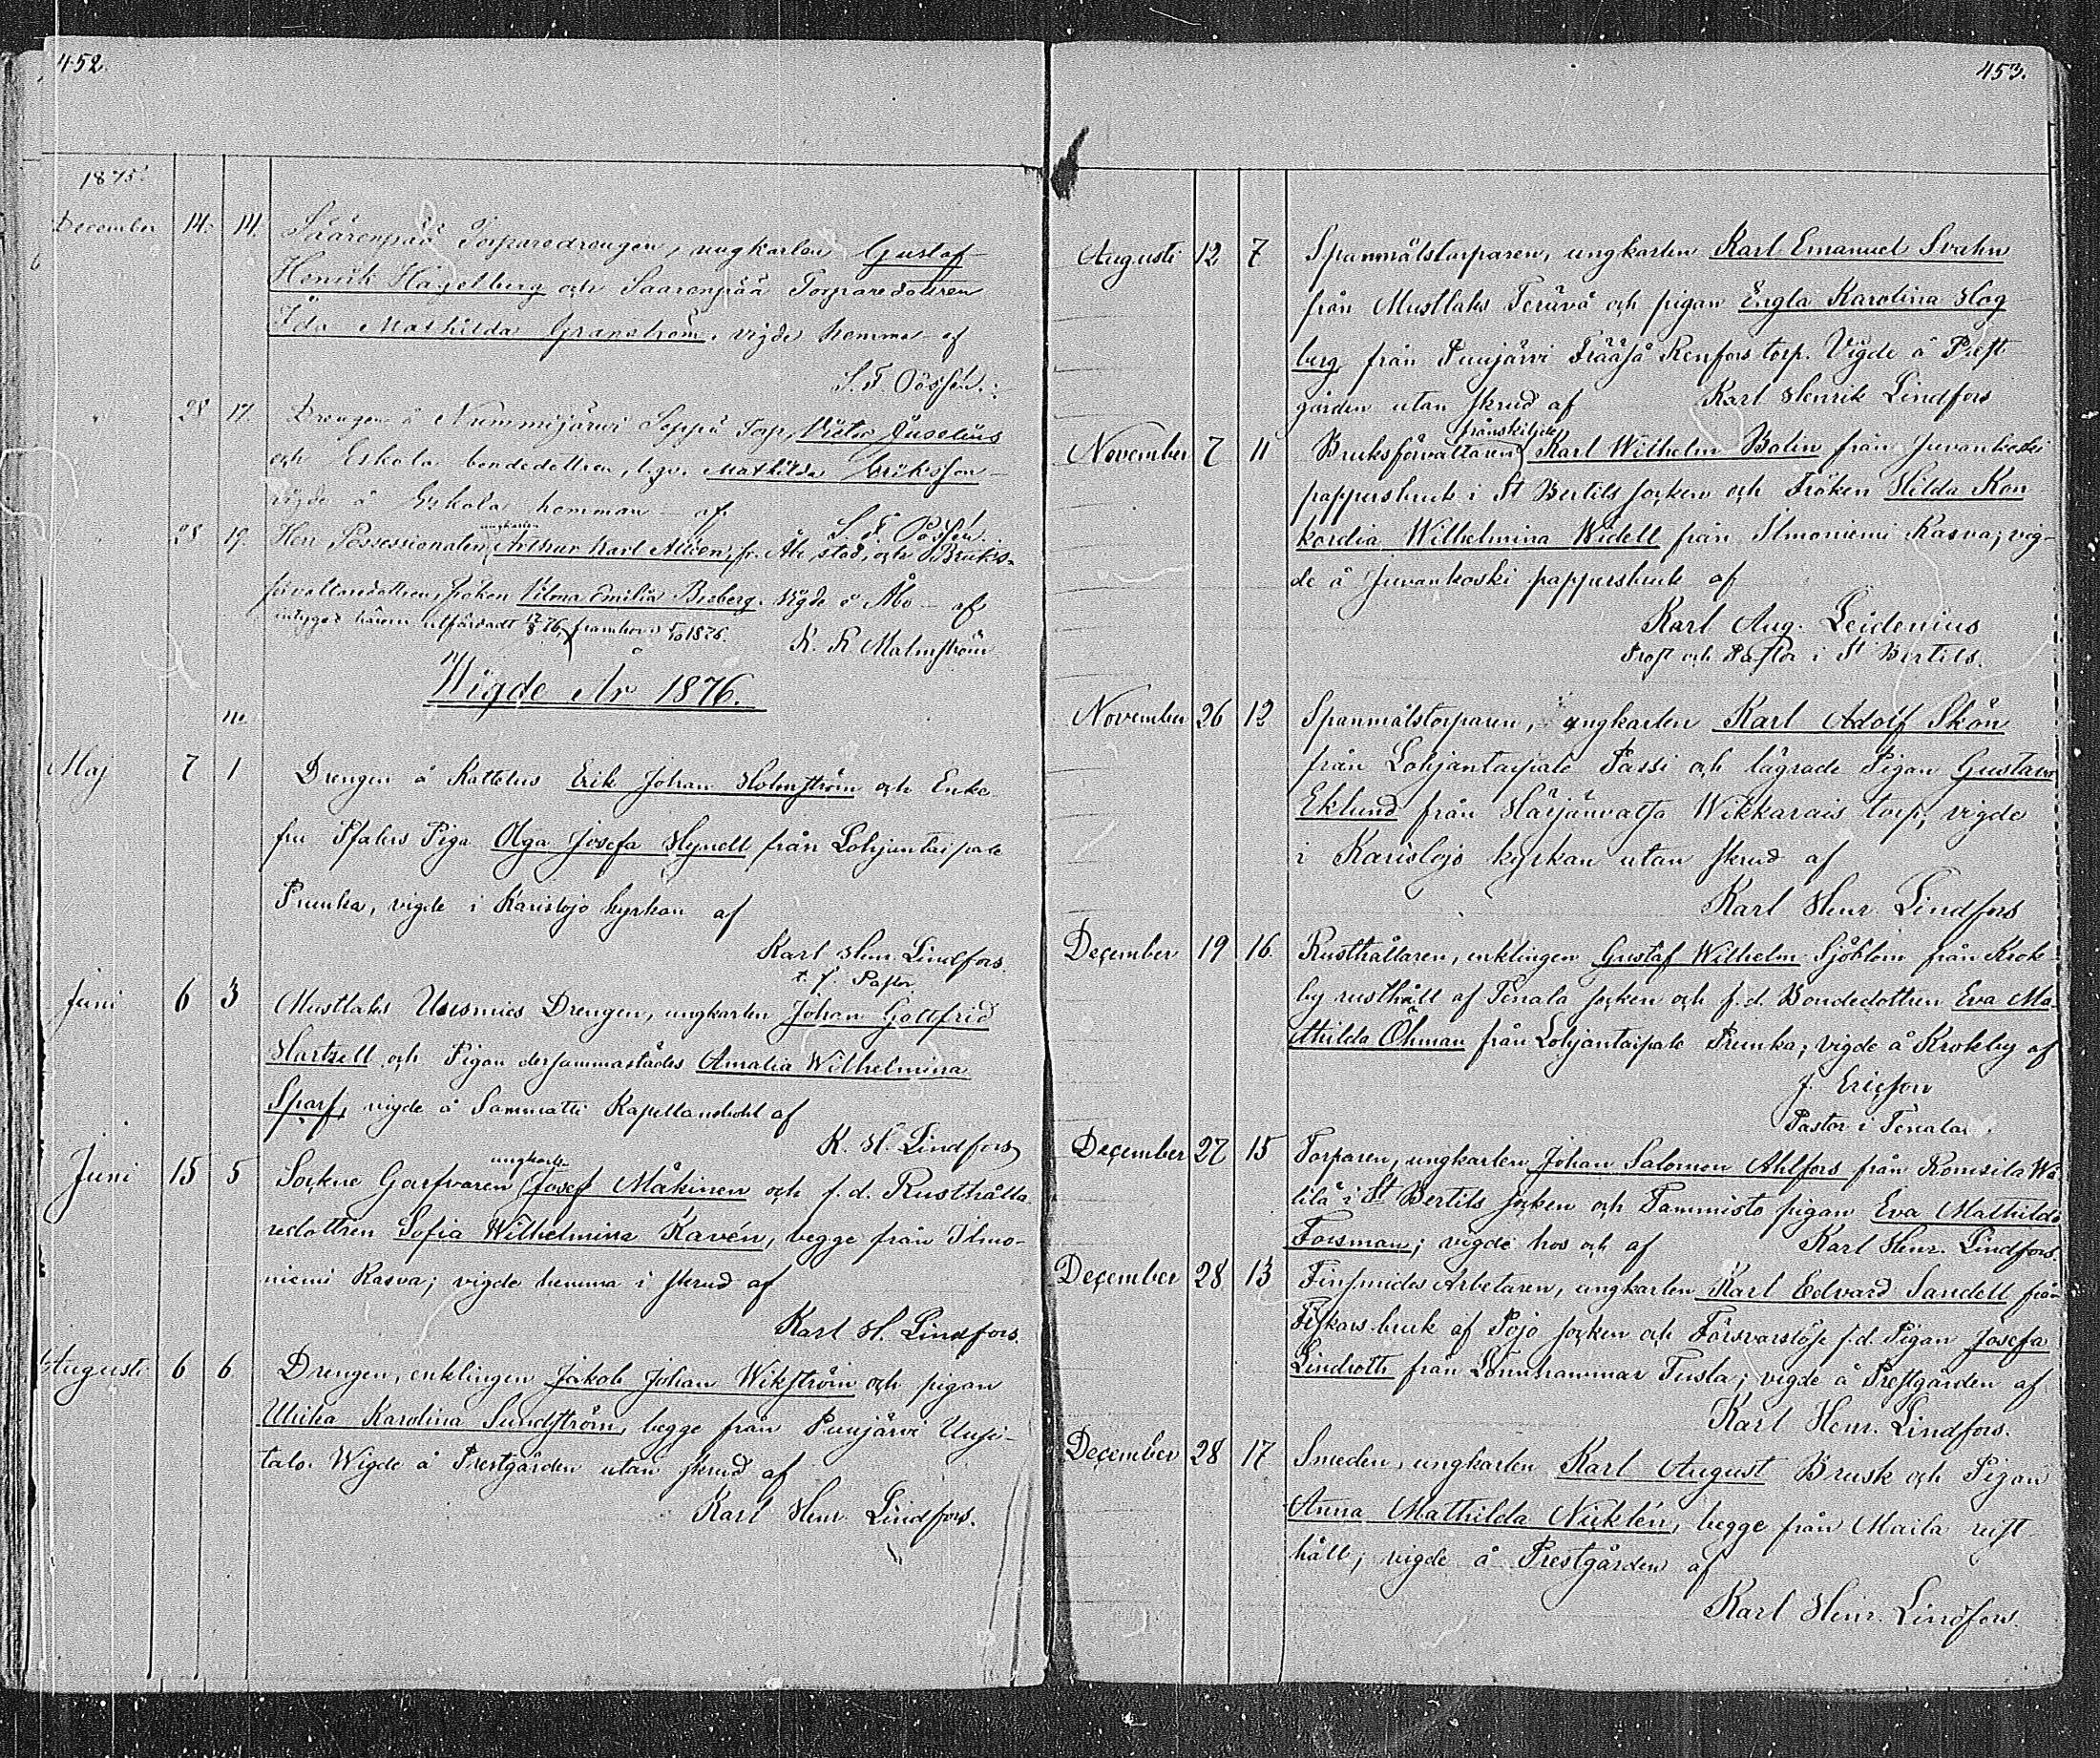 452.
1875.
December 14. 14. Saarenpää Torparedrengen, ungkarlen Gustaf
Henrik Hagelberg och Saarenpää Torparedottren
Ida Mathilda Granström, vigde hemma af
S. F. Possén.
" 28 17. Drengen å Nummijärvi Seppä Torp, Victor Juselius
och Eskola bondedottren, Mathilda Eriksson
vigde å Eskola hemman af
S. F. Possén.
" 28 19. Herr Possessionaten, ungkarlen Arthur Karl Alléen, fr. Åbo stad, och Bruks-
förvaltaredottren, fröken Vilma Emilia Broberg. Vigde i Åbo af
intyget härom utfärdadt 76, framkom 1876.
K. K. Malmström
Wigde År 1876.
n.
Maj 7 1 Drengen å Kattelus Erik Johan Holmström och Enke-
fru Pfalers Piga Olga Josefa Hynell från Lohjantaipale
Prunka, vigde i Karislojo kyrkan af
Karl Henr. Lindfors.
t. f. Pastor
Juni 6 3 Mustlaks Uusmies Drengen, ungkarlen Johan Gottfrid
Hartzell och Pigan dersammastädes Amalia Wilhelmina
Sparf, vigde å Sammatti Kapellansbohl af
K. H. Lindfors
Juni 15 5 Sockne Garfvaren, ungkarlen Josef Mäkinen och f. d. Rusthålla-
redottren Sofia Wilhelmina Kavén, begge från Ilmo-
niemi Rasva; vigde hemma i skrud af
Karl H. Lindfors.
Augusti 6 6 Drengen, enklingen Jakob Johan Wikström och pigan
Ulrika Karolina Sundström, begge från Puujärvi Uusi-
talo. Wigde å Prestgården utan skrud af
Karl Henr. Lindfors.
453.
Augusti 12 7 Spanmålstorparen, ungkarlen Karl Emanuel Svahn
från Mustlaks Terävä och pigan Engla Karolina Hag
berg från Puujärvi Frääsä Renfors torp. Vigde å Prest
gården utan skrud af Karl Henrik Lindfors
November 7 11 Bruksförvaltaren, frånskiljde Karl Wilhelm Bolin från Juvankoski
pappersbruk i St Bertils socken och Fröken Hilda Kon
kordia Wilhelmina Widell från Ilmoniemi Rasva; vig-
de å Juvankoski pappersbruk af
Karl Aug. Leidenius
Prost och Pastor i St Bertils.
November 26 12 Spanmålstorparen, ungkarlen Karl Adolf Skön
från Lohjantaipale Passi och lägrade Pigan Gustava
Eklund från Härjänvatsa Wikkarais torp; vigde
i Karislojo kyrkan utan skrud af
Karl Henr. Lindfors
December 19 16. Rusthållaren, enklingen Gustaf Wilhelm Sjöblom från Krok-
by rusthåll af Tenala socken och f. d. Bondedottren Eva Ma-
thilda Öhman från Lohjantaipale Prunka; vigde å Krokby af
J. Ericsson
Pastor i Tenala.
December 27 15 Torparen, ungkarlen Johan Salomon Ahlfors från Romsila Wä
lilä i St Bertils socken och Pammisto pigan Eva Mathilda
Forsman; vigde hos och af Karl Henr. Lindfors.
December 28 13 Finsmides Arbetaren, ungkarlen Karl Edvard Sandell från
Fiskars bruk af Pojo socken och Försvarslöse f.d. Pigan Josefa
Lindroth från Lönnhammar Tusla; vigde å Prestgården af
Karl Henr. Lindfors.
December 28 17 Smeden, ungkarlen Karl August Brusk och Pigan
Anna Mathilda Nicklén, begge från Maila rust
håll; vigde å Prestgården af
Karl Henr. Lindfors.